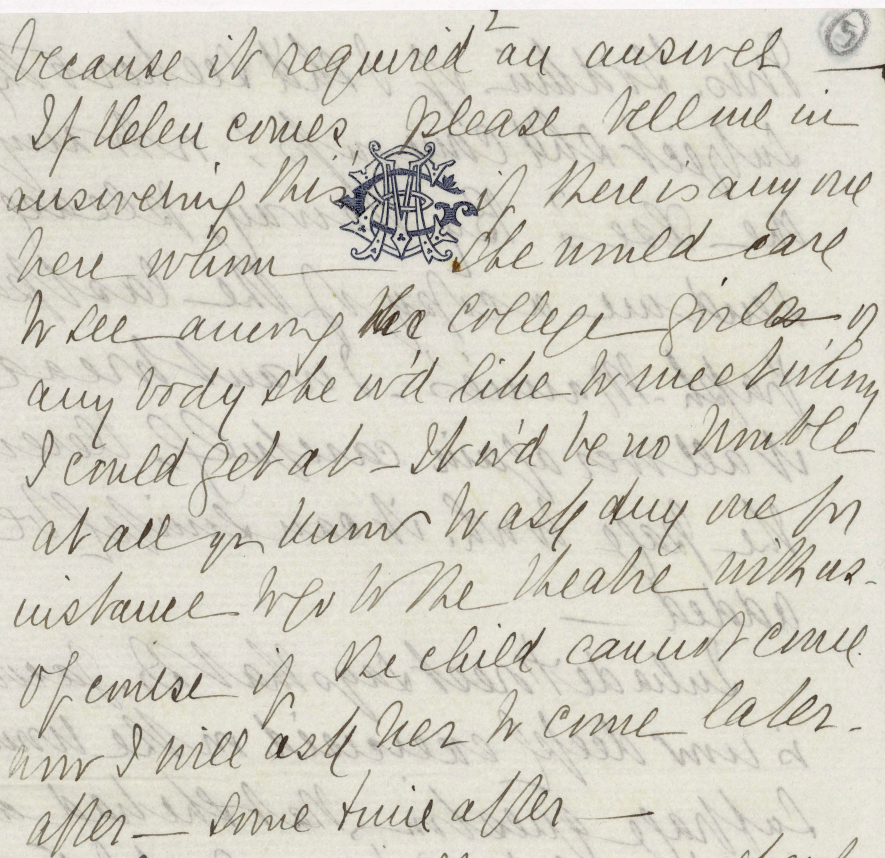 2
5
because it required an answer —
If Helen comes, please tell me in
answering this, if there is any one
here whom — she would care
to see among her college girls or
any body she w'd like to meet whom
I could get at – It w'd be no trouble
at all you know to ask any one for
instance to go to the theatre with us –
Of course if the child cannot come
now I will ask her to come later –
after — some time after —